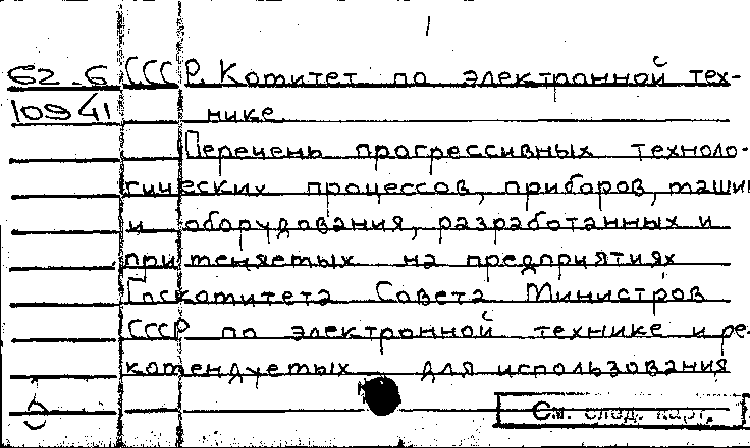 62-6 СССР. Комитет по электронной тех-
10941 нике.
Перечень прогрессивных техноло-
гических процессов, приборов, машин
и оборудования, разработанных и
применяемых на предприятиях
Госкомитета Совета Министров
СССР по электронной технике и ре-
комендуемых для использования
См. след. карт.